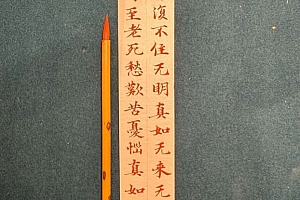 復不住无明真如无来无
至老死愁歎苦憂惱真如